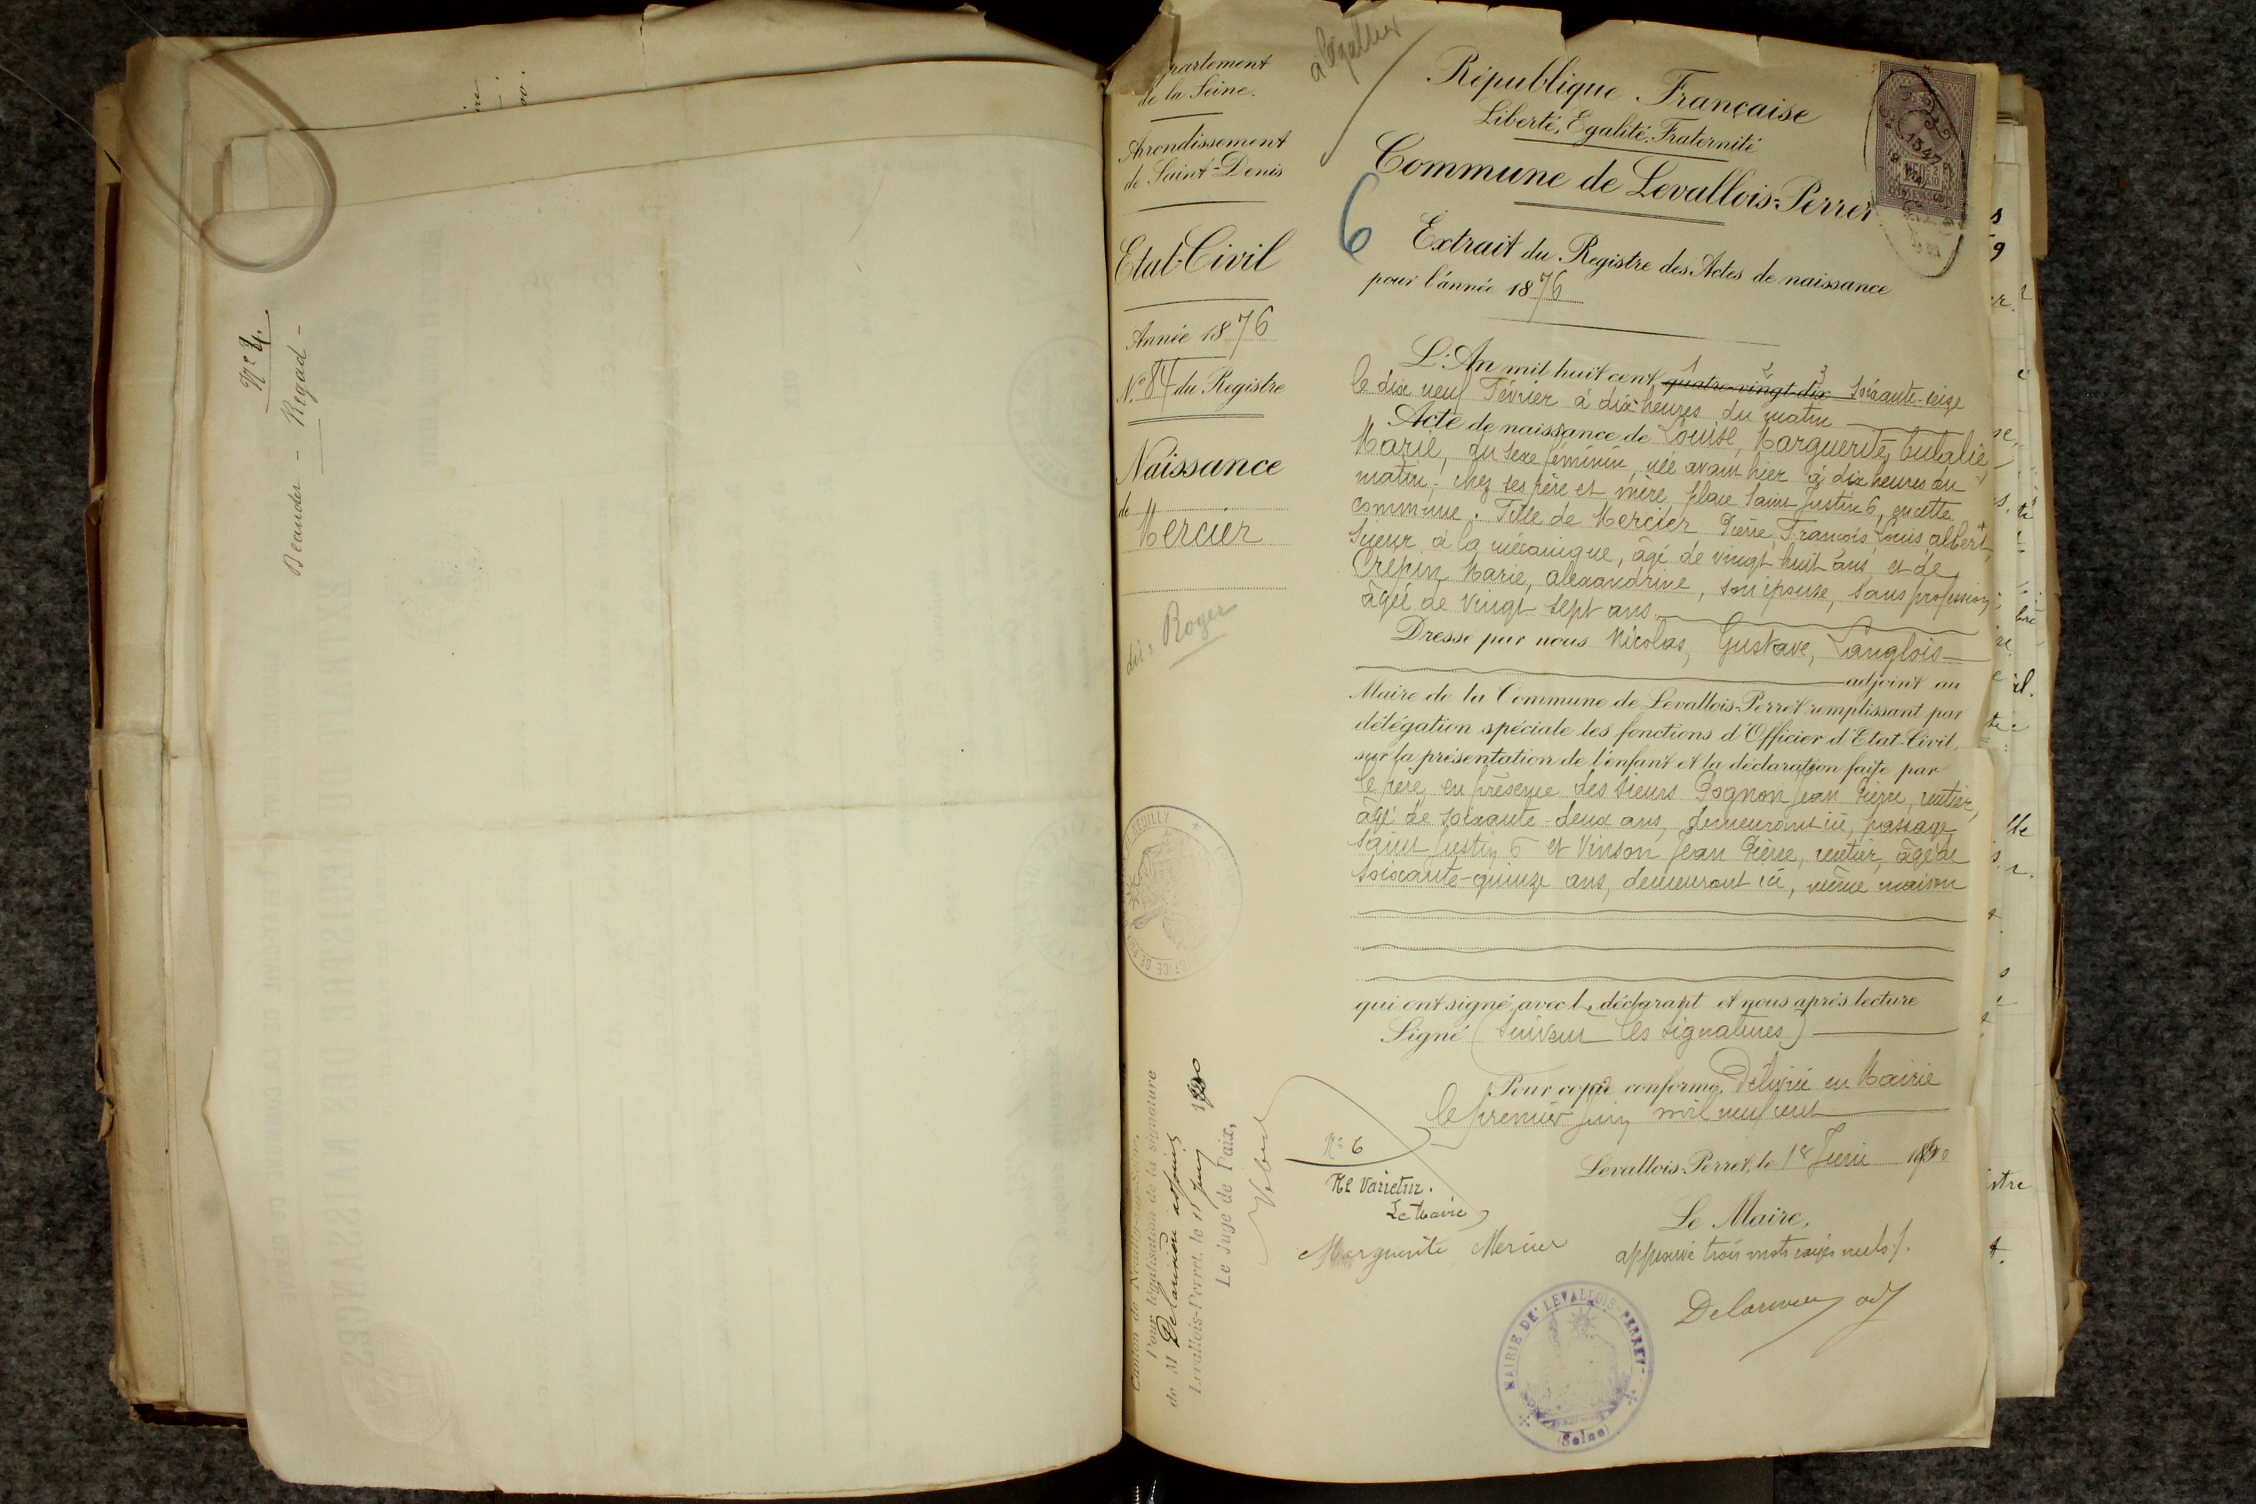 N° 4
Beauder - Rigad -
partement
de la Seine.
Arrondissement
de Saint-Denis
Etat-Civil
Année 1876
N° 84 du Registre
Naissance
de
Mercier
dit: Roger
à légaliser
République Française
Liberté, Egalité, Fraternité
Commune de Levallois-Perret
6
Extrait du Registre des Actes de naissance
pour l'année 1876
1 2 3
L'An mil huit cent quatre-vingt-dix soixante-seize
le dix neuf Février à dix heures du matin
Acte de naissance de Louise, Marguerite, Eulalie
Marie, du sexe féminin, née avant hier à dix heures du
matin, chez ses père et mère, place Saint Justin 6, en cette
commune. Fille de Mercier Pierre, François Louis, albert,
Scieur à la mécanique, âgé de vingt huit ans, et de
Crépin Marie, alexandrine, son épouse, sans profession,
âgée de vingt sept ans.
Dressé par nous Nicolas, Gustave, Langlois
adjoint au
Maire de la Commune de Levallois-Perret remplissant par
délégation spéciale les fonctions d'Officier d'Etat-Civil,
sur la présentation de l'enfant et la déclaration faite par
le père, en présence des sieurs Pognon Jean Pierre, rentier,
âgé de soixante-deux ans, demeurant ici, passage
Saint Justin 6 et Vinson Jean Pierre, rentier, âgé de
soixante-quinze ans, demeurant ici, même maison
qui ont signé, avec le déclarant et nous après lecture
Signé (suivent les signatures)
Pour copie conforme, Délivré en Mairie
le premier Juin mil neuf cent
Levallois-Perret, le 1er Juin 1900
Le Maire,
approuvé trois mots rayés nuls /.
Delarivière adj
N° 6
Ne Varietur.
Le Maire
Marguerite Mercier
Canton de Neuilly-sur-Seine.
Pour légalisation de la signature
de M Delarivière adjoint
Levallois-Perret, le 11 Juin 1900
Le Juge de Paix,
MAIRIE DE LEVALLOIS-PERRET
(Seine)
1347